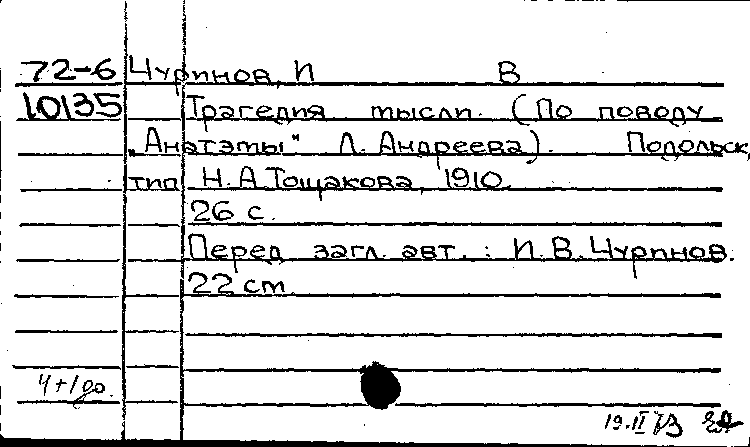 72-6 Чуринов, И В
10135 Трагедия мысли. (По поводу
„Анатэмы" Л. Андреева). Подольск,
тип. Н.А.Тощакова, 1910.
26 с.
Перед загл. авт.: И.В.Чуринов.
22 см.
19.II 73